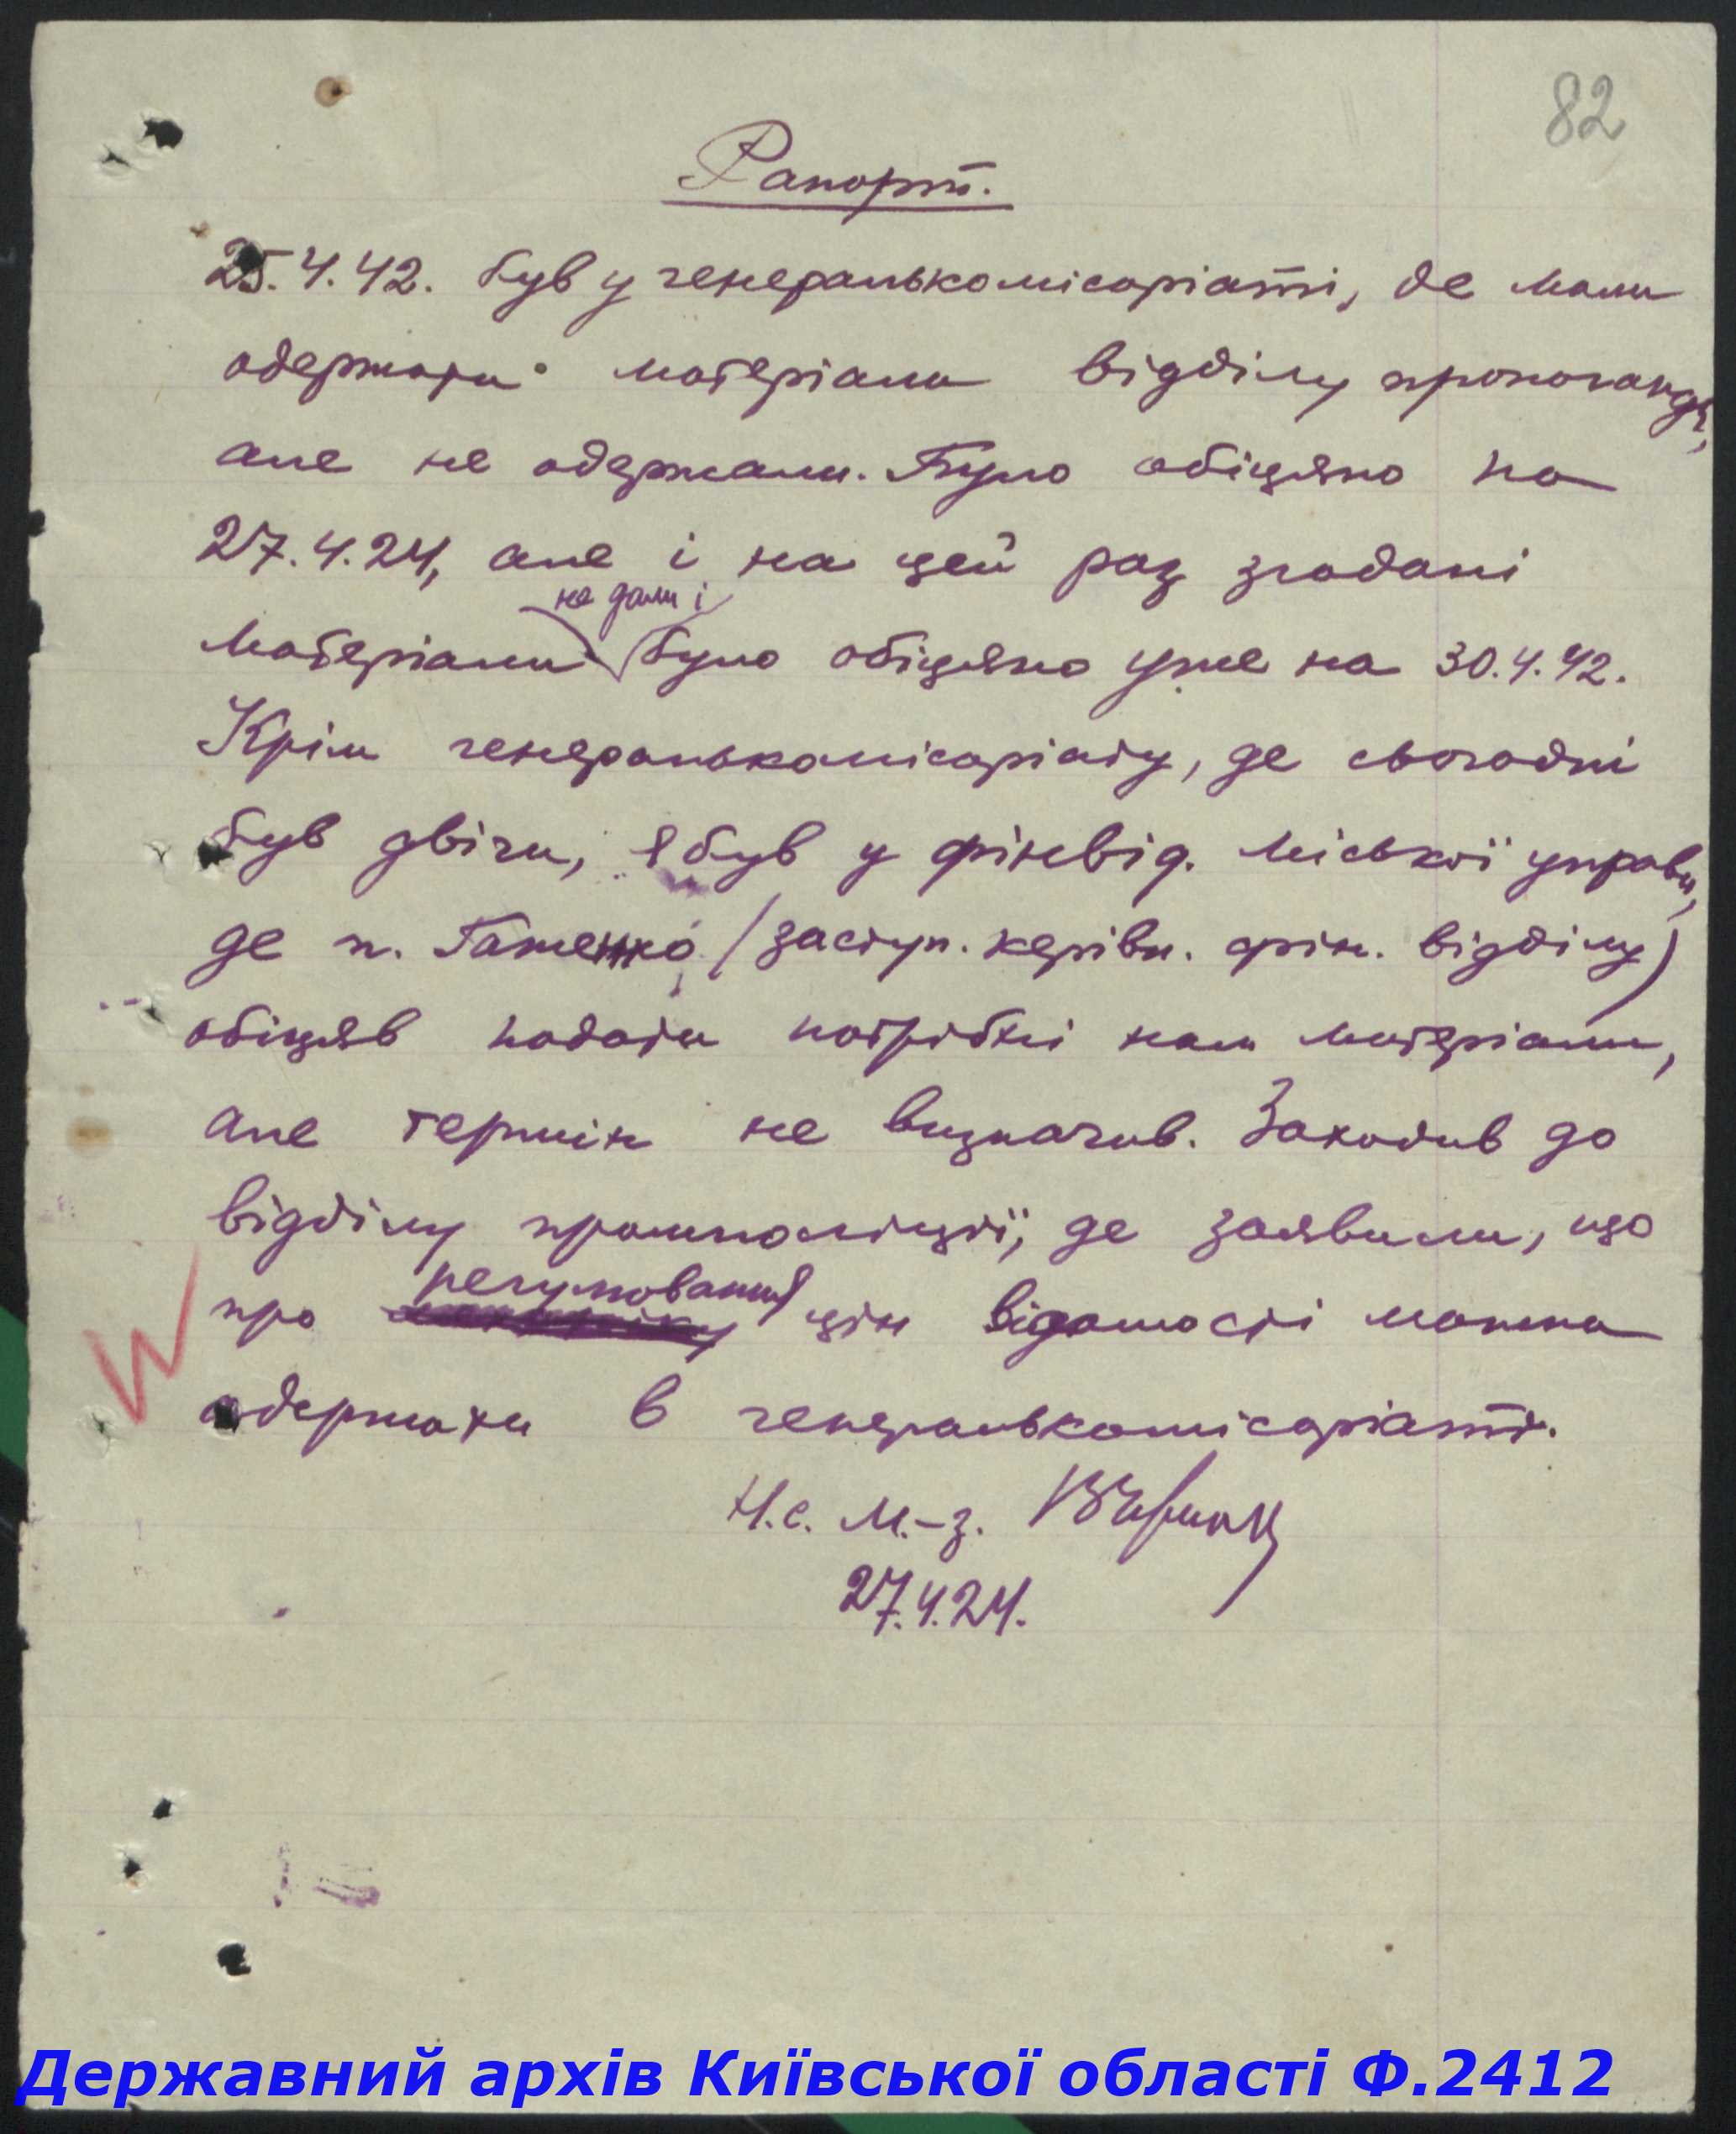 82
Рапорт.
25.4.42. був у генералькомісаріаті, де мали
одержати матеріали відділу пропоганди,
але не одержали. Було обіцяно на
27.4.24, але і на цей раз згадані
не дали і
матеріали було обіцяно уже на 30.4.42.
Крім генералькомісаріату, де сьогодні
був двічи, я був у фінвід. міської управи,
де п. (заступ. керівн. фін. відділу)
обіцяв подати потрібні нам матеріали,
але термін не визначив. Заходив до
відділу промполіції, де заявили, що
регулювання
про цін відомості можна
одержати в генералькомісаріаті.
Н.с. М.-з.
27.4.24.
Державний архів Київської області Ф.2412